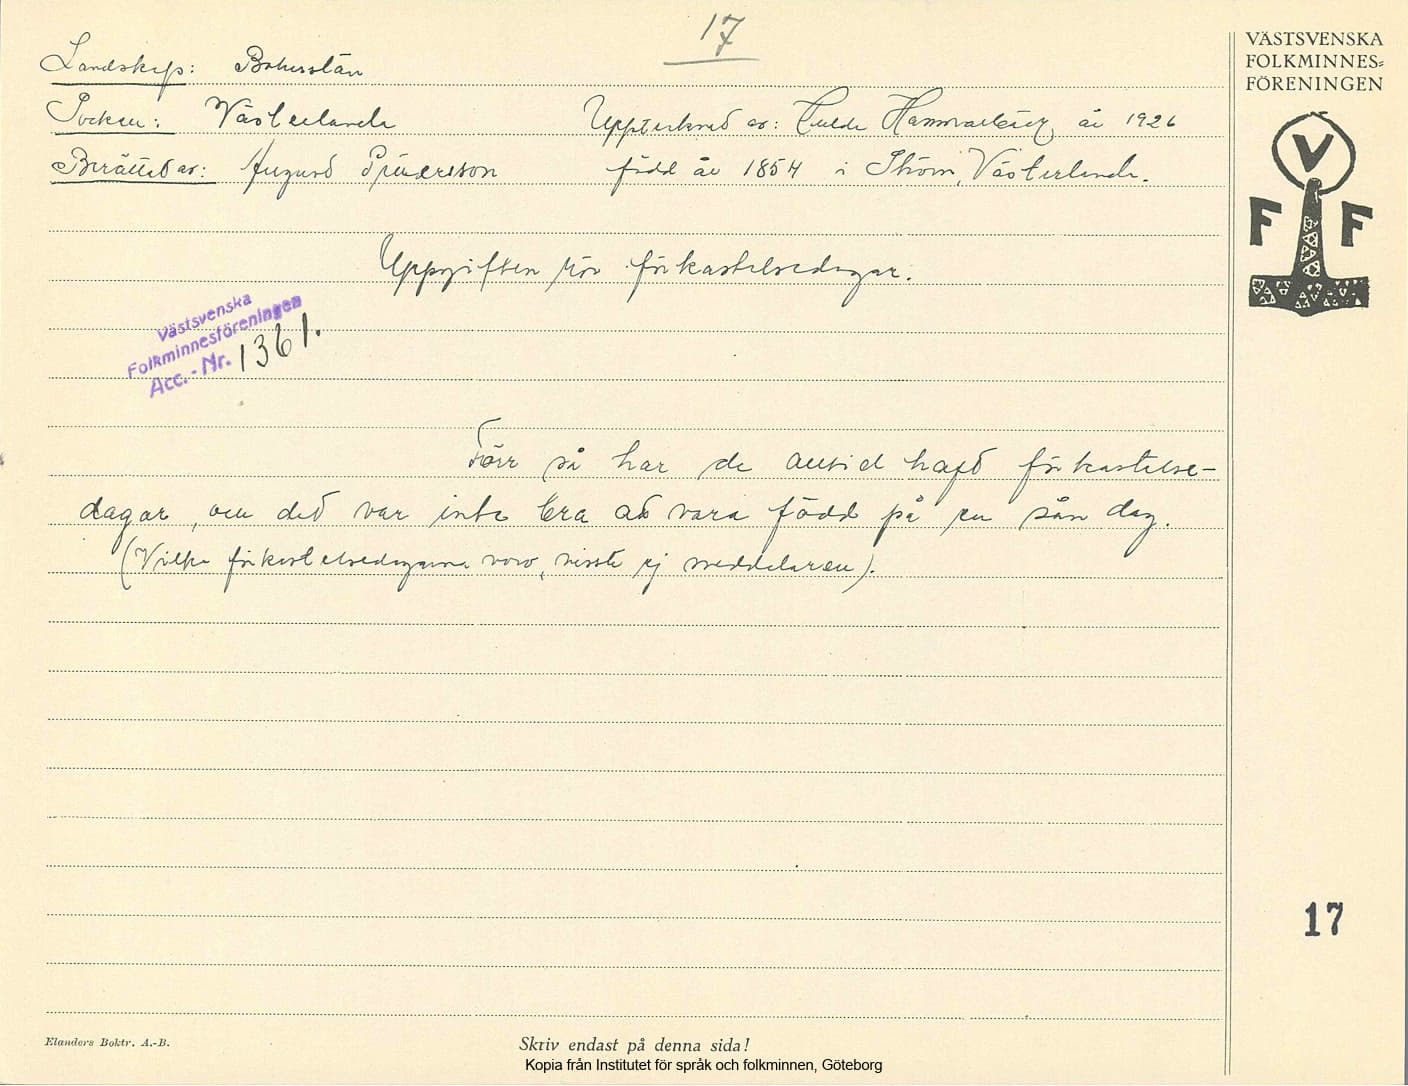 17
Landskap: Bohuslän
Socken: Västerlanda Upptecknat av: Hulda Hammarbäck år 1926
Berättat av: August född år 1854 i Ström, Västerlanda.
Uppgiften rör förkastelsedagar.
Västsvenska
Folkminnesföreningen
Acc. - Nr. 1361.
Förr så har de alltid haft förkastelse-
dagar, och det var inte bra att vara född på en sån dag.
(Vilka förkastelsedagarna voro, visste ej meddelaren).
VÄSTSVENSKA
FOLKMINNES=
FÖRENINGEN
V
F F
17
Elanders Boktr. A.-B.
Skriv endast på denna sida!
Kopia från Institutet för språk och folkminnen, Göteborg